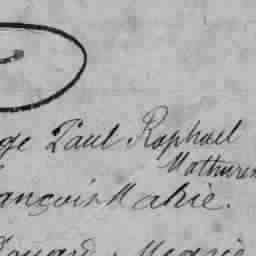 ge Paul Raphael
Mathurin
ançois Marie.
Marie